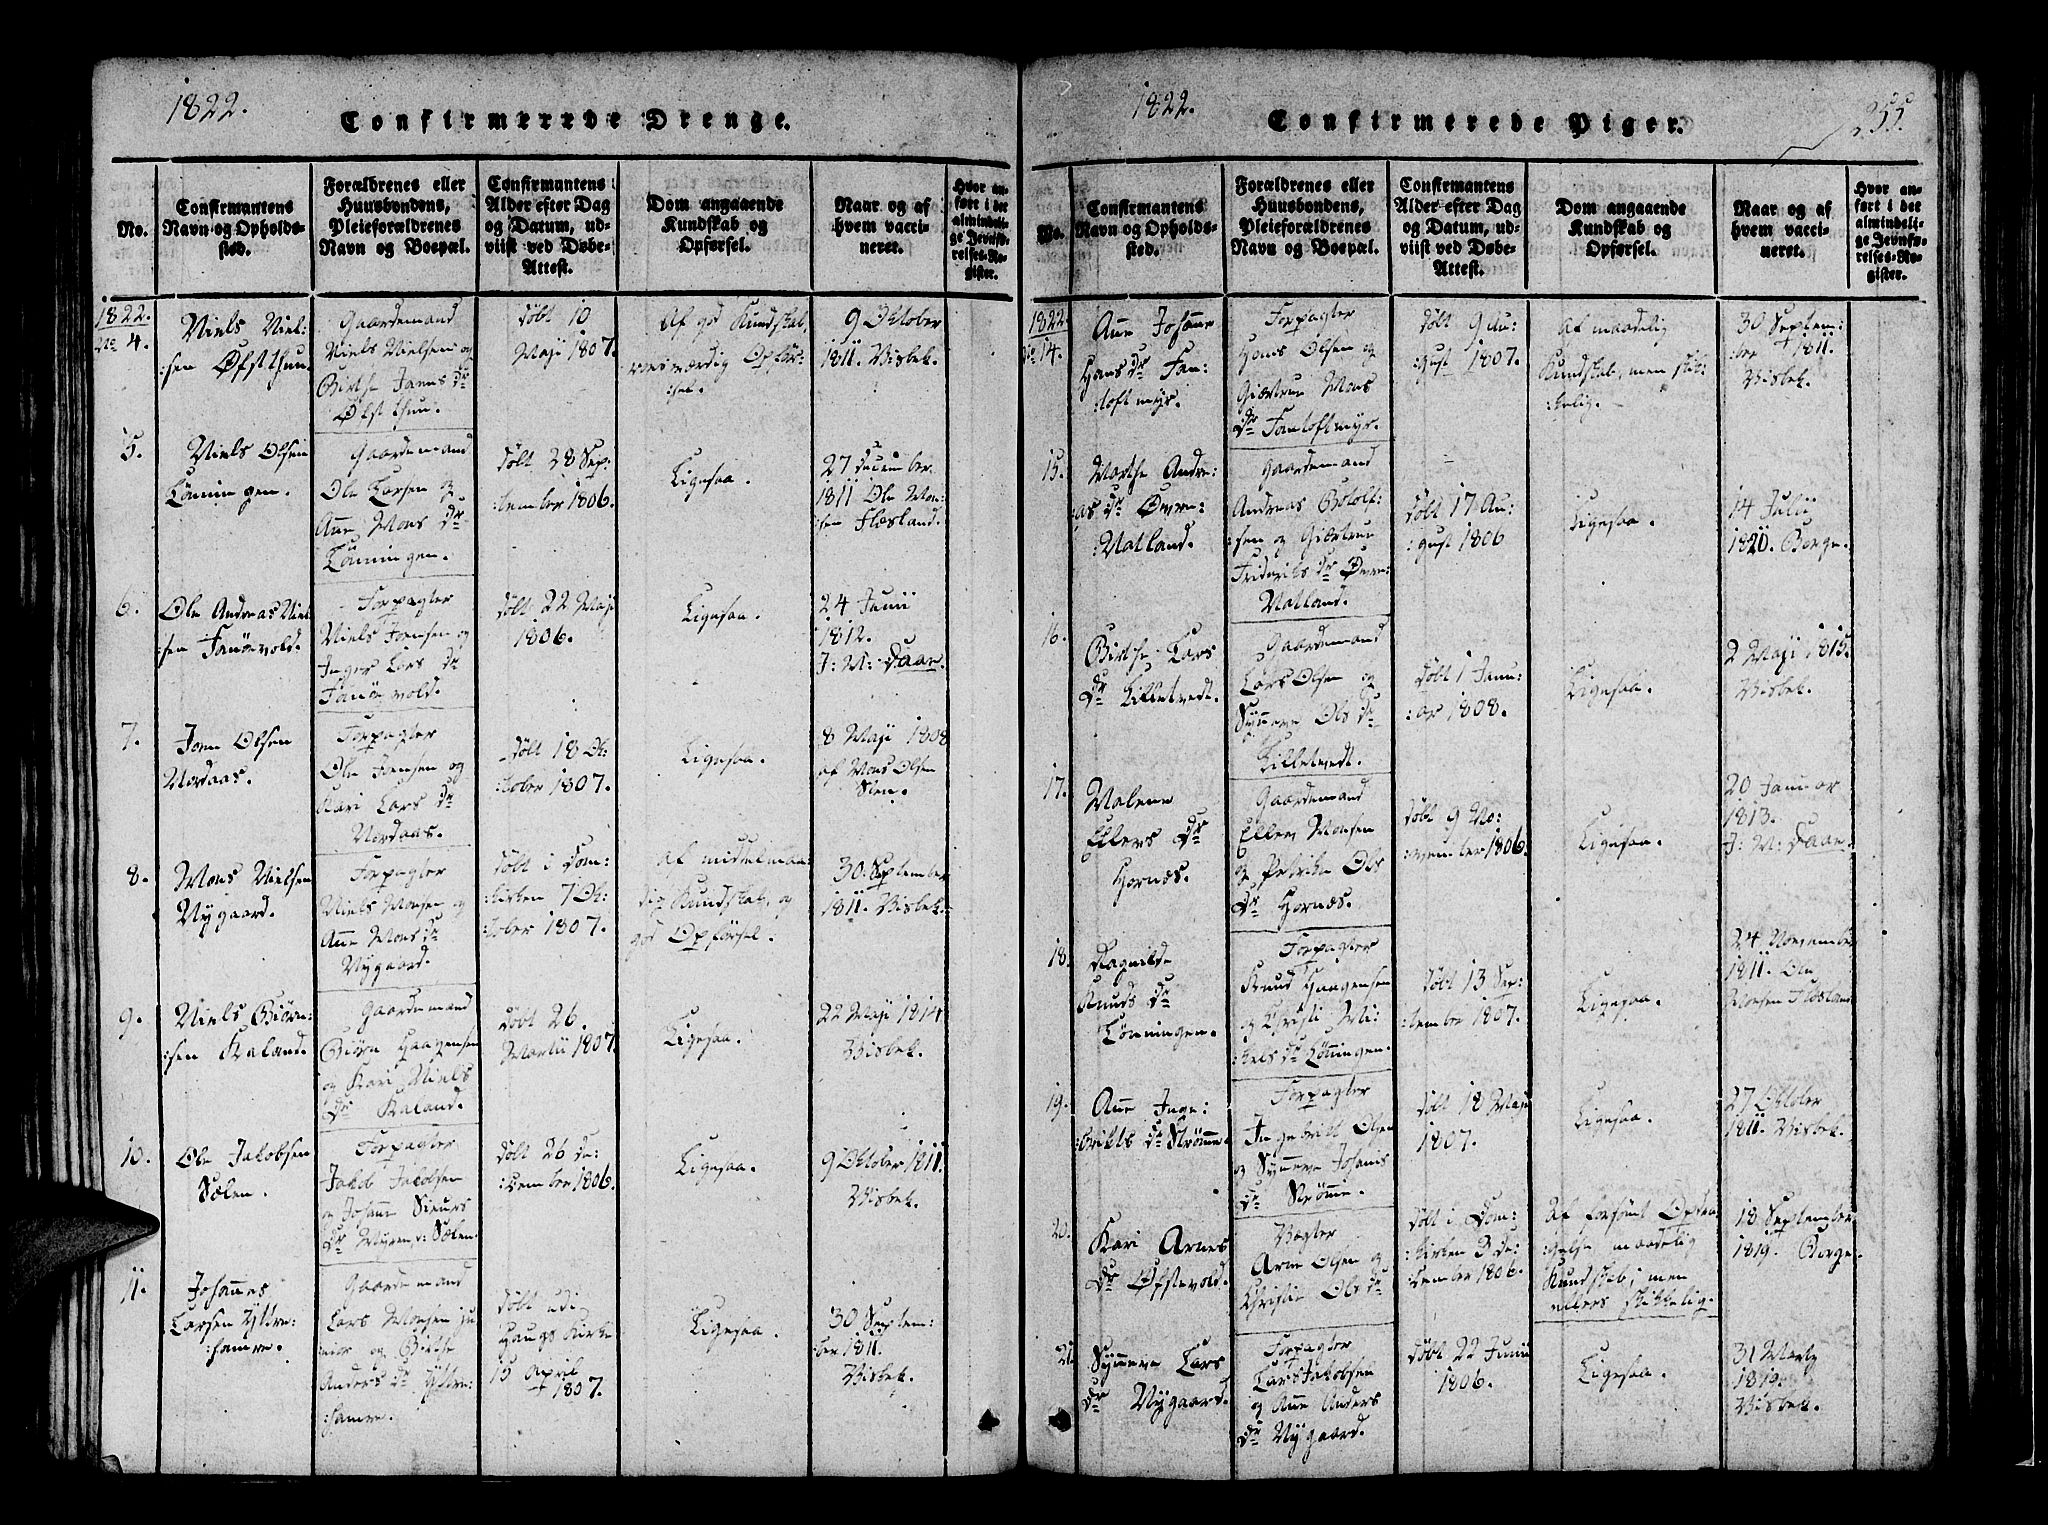 1822.
Confirmerede Drenge.
No.
Confirmantens
Navn og Opholds-
sted.
Forældrenes eller
Huusbondens,
Pleieforældrenes
Navn og Boepæl.
Confirmantens
Alder efter Dag
og Datum, ud-
viist ved Døbe-
Attest.
Dom angaaende
Kundskab og
Opførsel.
Naar og af
hvem vacci-
neret.
Hvor an-
ført i det
almindeli-
ge Jevnfø-
relses-Re-
gister.
1822.
No 4.
Niels Niel:
:sen Øfstthun
Gaardemand
Niels Nielsen og
Birthe Jans dr
Øfstthun.
døbt 10
Maji 1807.
Af god Kundskab,
roesværdig Opfør:
:sel.
9 Oktober
1811. Bisbek.
5.
Niels Olsen
Lønningen.
Gaardemand
Ole Larsen og
Anne Mons dr
Lønningen.
døbt 28 Sep:
:tember 1806.
Ligesaa.
27 December
1811 Ole Mon:
:sen Flesland.
6.
Ole Andreas Niel
:sen Fanøevold.
Forpagter
Niels Jensen og
Inger Lars dr
Fanøevold.
døbt 22 Maji
1806.
Ligesaa.
24 Junii
1812.
J: M: Daae.
7.
Joen Olsen
Nordaas.
Forpagter
Ole Jonsen og
Kari Lars dr
Nordaas.
døbt 18 Ok:
:tober 1807.
Ligesaa.
8 Maji 1808
af Mons Olsen
Sien.
8.
Mons Nielsen
Nygaard.
Forpagter
Niels Monsen og
Anne Mons dr
Nygaard.
døbt i Dom:
:kirken 7 Ok:
:tober 1807.
af middelmaa:
dig Kundskab, og
god Opførsel.
30 September
1811. Bisbek.
9.
Niels Biørn:
:sen Kaland.
Gaardemand
Biørn Haagensen
og Kari Niels
dr Kaland.
døbt 26
Martii 1807.
Ligesaa.
22 Maji 1814
Bisbek.
10.
Ole Jakobsen
Sælen.
Forpagter
Jakob Jakobsen
og Johanne Siurs
dr Myren v: Sælen.
døbt 26 De:
:cember 1806.
Ligesaa.
9 Oktober 1811.
Bisbek.
11.
Johannes
Larsen Yttre:
:hamre.
Gaardemand
Lars Monsen ju
:nior og Birthe
Anders dr Yttre:
:hamre.
døbt udi
Haugs Kirke
15 April
1807.
Ligesaa.
30 Septem:
:ber 1811.
Bisbek.
1822.
Confirmerede Piger.
255.
No.
Confirmantens
Navn og Opholds-
sted.
Forældrenes eller
Huusbondens,
Pleieforældrenes
Navn og Boepæl.
Confirmantens
Alder efter Dag
og Datum, ud-
viist ved Døbe-
Attest.
Dom angaaende
Kundskab og
Opførsel.
Naar og af
hvem vacci-
neret.
Hvor an-
ført i det
almindeli-
ge Jevnfø-
relses-Re-
gister.
1822.
No 14.
Anne Johanne
Hans dr Fan:
:toftmyr.
Forpagter
Hans Olsen og
Giertrue Mons
dr Fantoftmyr.
døbt 9 Au:
:gust 1807.
af maadelig
Kundskab, men skik:
:kelig.
30 Septem:
:ber 1811.
Bisbek.
15.
Marthe Andre:
:as dr Øvre:
:Natland.
Gaardemand
Andreas Botolf:
:sen og Giertrue
Friderichs dr Øvre:
Natland.
døbt 17 Au:
:gust 1806
Ligesaa.
14 Julii
1820. Borge.
16.
Birthe Lars
dr Lilletvedt.
Gaardemand
Lars Olsen og
Synneve Ols dr
Lilletvedt.
døbt 1 Janu:
:ar 1808.
Ligesaa.
2 Maji 1815.
Bisbek.
17.
Malene
Ellers dr
Hornæs.
Gaardemand
Eller Monsen
og Petrike Ols
dr Hornæs.
døbt 9 No:
:vember 1806.
Ligesaa.
20 Januar
1813.
J: M: Daae.
18.
Ragnilde
Knuds dr
Lønningen.
Forpagter
Knud Haagensen
og Christi Mi:
:kels dr Lønningen.
døbt 13 Sep:
:tember 1807.
Ligesaa.
24 November
1811. Ole
Monsen Flesland
19.
Anne Inge:
:brikts dr Strømme.
Forpagter
Ingebrikt Olsen
og Synneve Johanis
dr Strømme.
døbt 18 Maji
1807.
Ligesaa.
27 Oktober
1811. Bisbek.
20.
Kari Arnes
dr Øfstevold.
Vægter
Arne Olsen og
Christie Ols dr
døbt i Dom:
:kirken 3 De:
:cember 1806.
Af forsømt Opdra
:gelse maadelig
Kundskab; men
ellers skikkelig.
18 September
1819. Borge.
21
Synneve Lars
dr Nygaard.
Forpagter
Lars Jakobsen
og Anne Anders
dr Nygaard.
døbt 22 Junii
1806.
Ligesaa.
31 Marty
1819.
Bisbek.